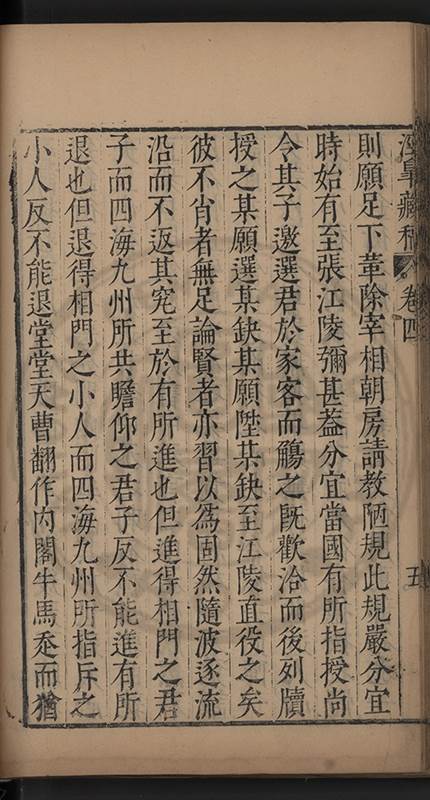 涇臯藏稿 卷四 五
則願足下葦除宰相朝房請教陋規此規嚴分宜
時始有至張江陵彌甚葢分宜當國有所指授尚
令其子邀選君於家客而觴之旣歡洽而後列牘
授之某願選某缺某願陞某缺至江陵直役之矣
彼不肖者無足論賢者亦習以爲固然隨波逐流
沿而不返其究至於有所進也但進得相門之君
子而四海九州所共瞻仰之君子反不能進有所
退也但退得相門之小人而四海九州所指斥之
小人反不能退堂堂天曹翻作内閣牛馬走而猶